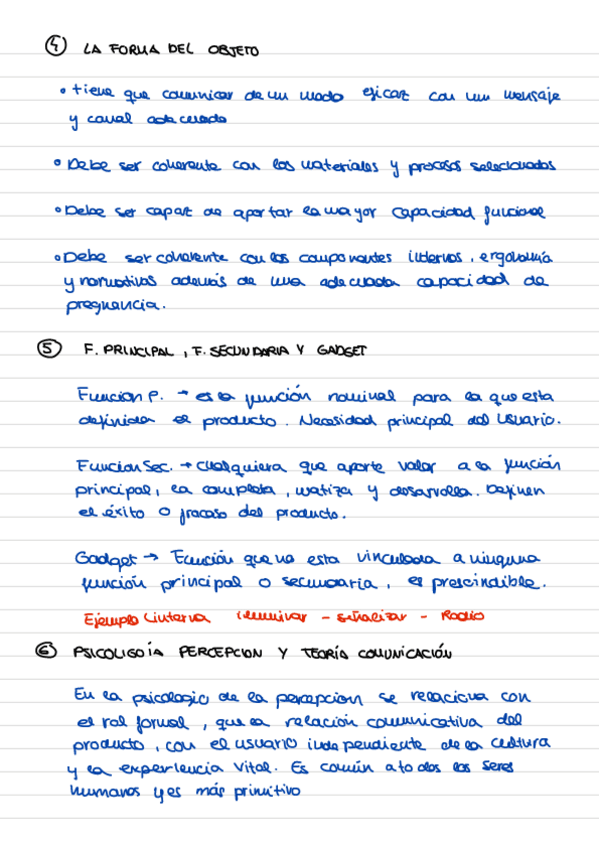 ④ LA FORMA DEL OBJETO
• tiene que comunicar de un modo eficaz con un mensaje
y canal adecuado
• Debe ser coherente con los materiales y procesos seleccionados
• Debe ser capaz de aportar la mayor capacidad funcional
• Debe ser coherente con los componentes internos, ergonomía
y normativas además de una adecuada capacidad de
pregnancia.
⑤ F. PRINCIPAL, F. SECUNDARIA Y GADGET
Función P. → es la función nominal para la que esta
definida el producto. Necesidad principal del usuario.
Función Sec. → cualquiera que aporte valor a la función
principal, la completa, matiza y desarrolla. Definen
el éxito o fracaso del producto.
Gadget → Función que no esta vinculada a ninguna
función principal o secundaria, es prescindible.
Ejemplo linterna iluminar - señalizar - Radio
⑥ PSICOLIGOÍA PERCEPCION Y TEORÍA COMUNICACIÓN
En la psicologia de la percepcion se relaciona con
el rol formal, que la relación comunicativa del
producto, con el usuario independiente de la cultura
y la experiencia vital. Es común a todos los seres
humanos y es más primitivo